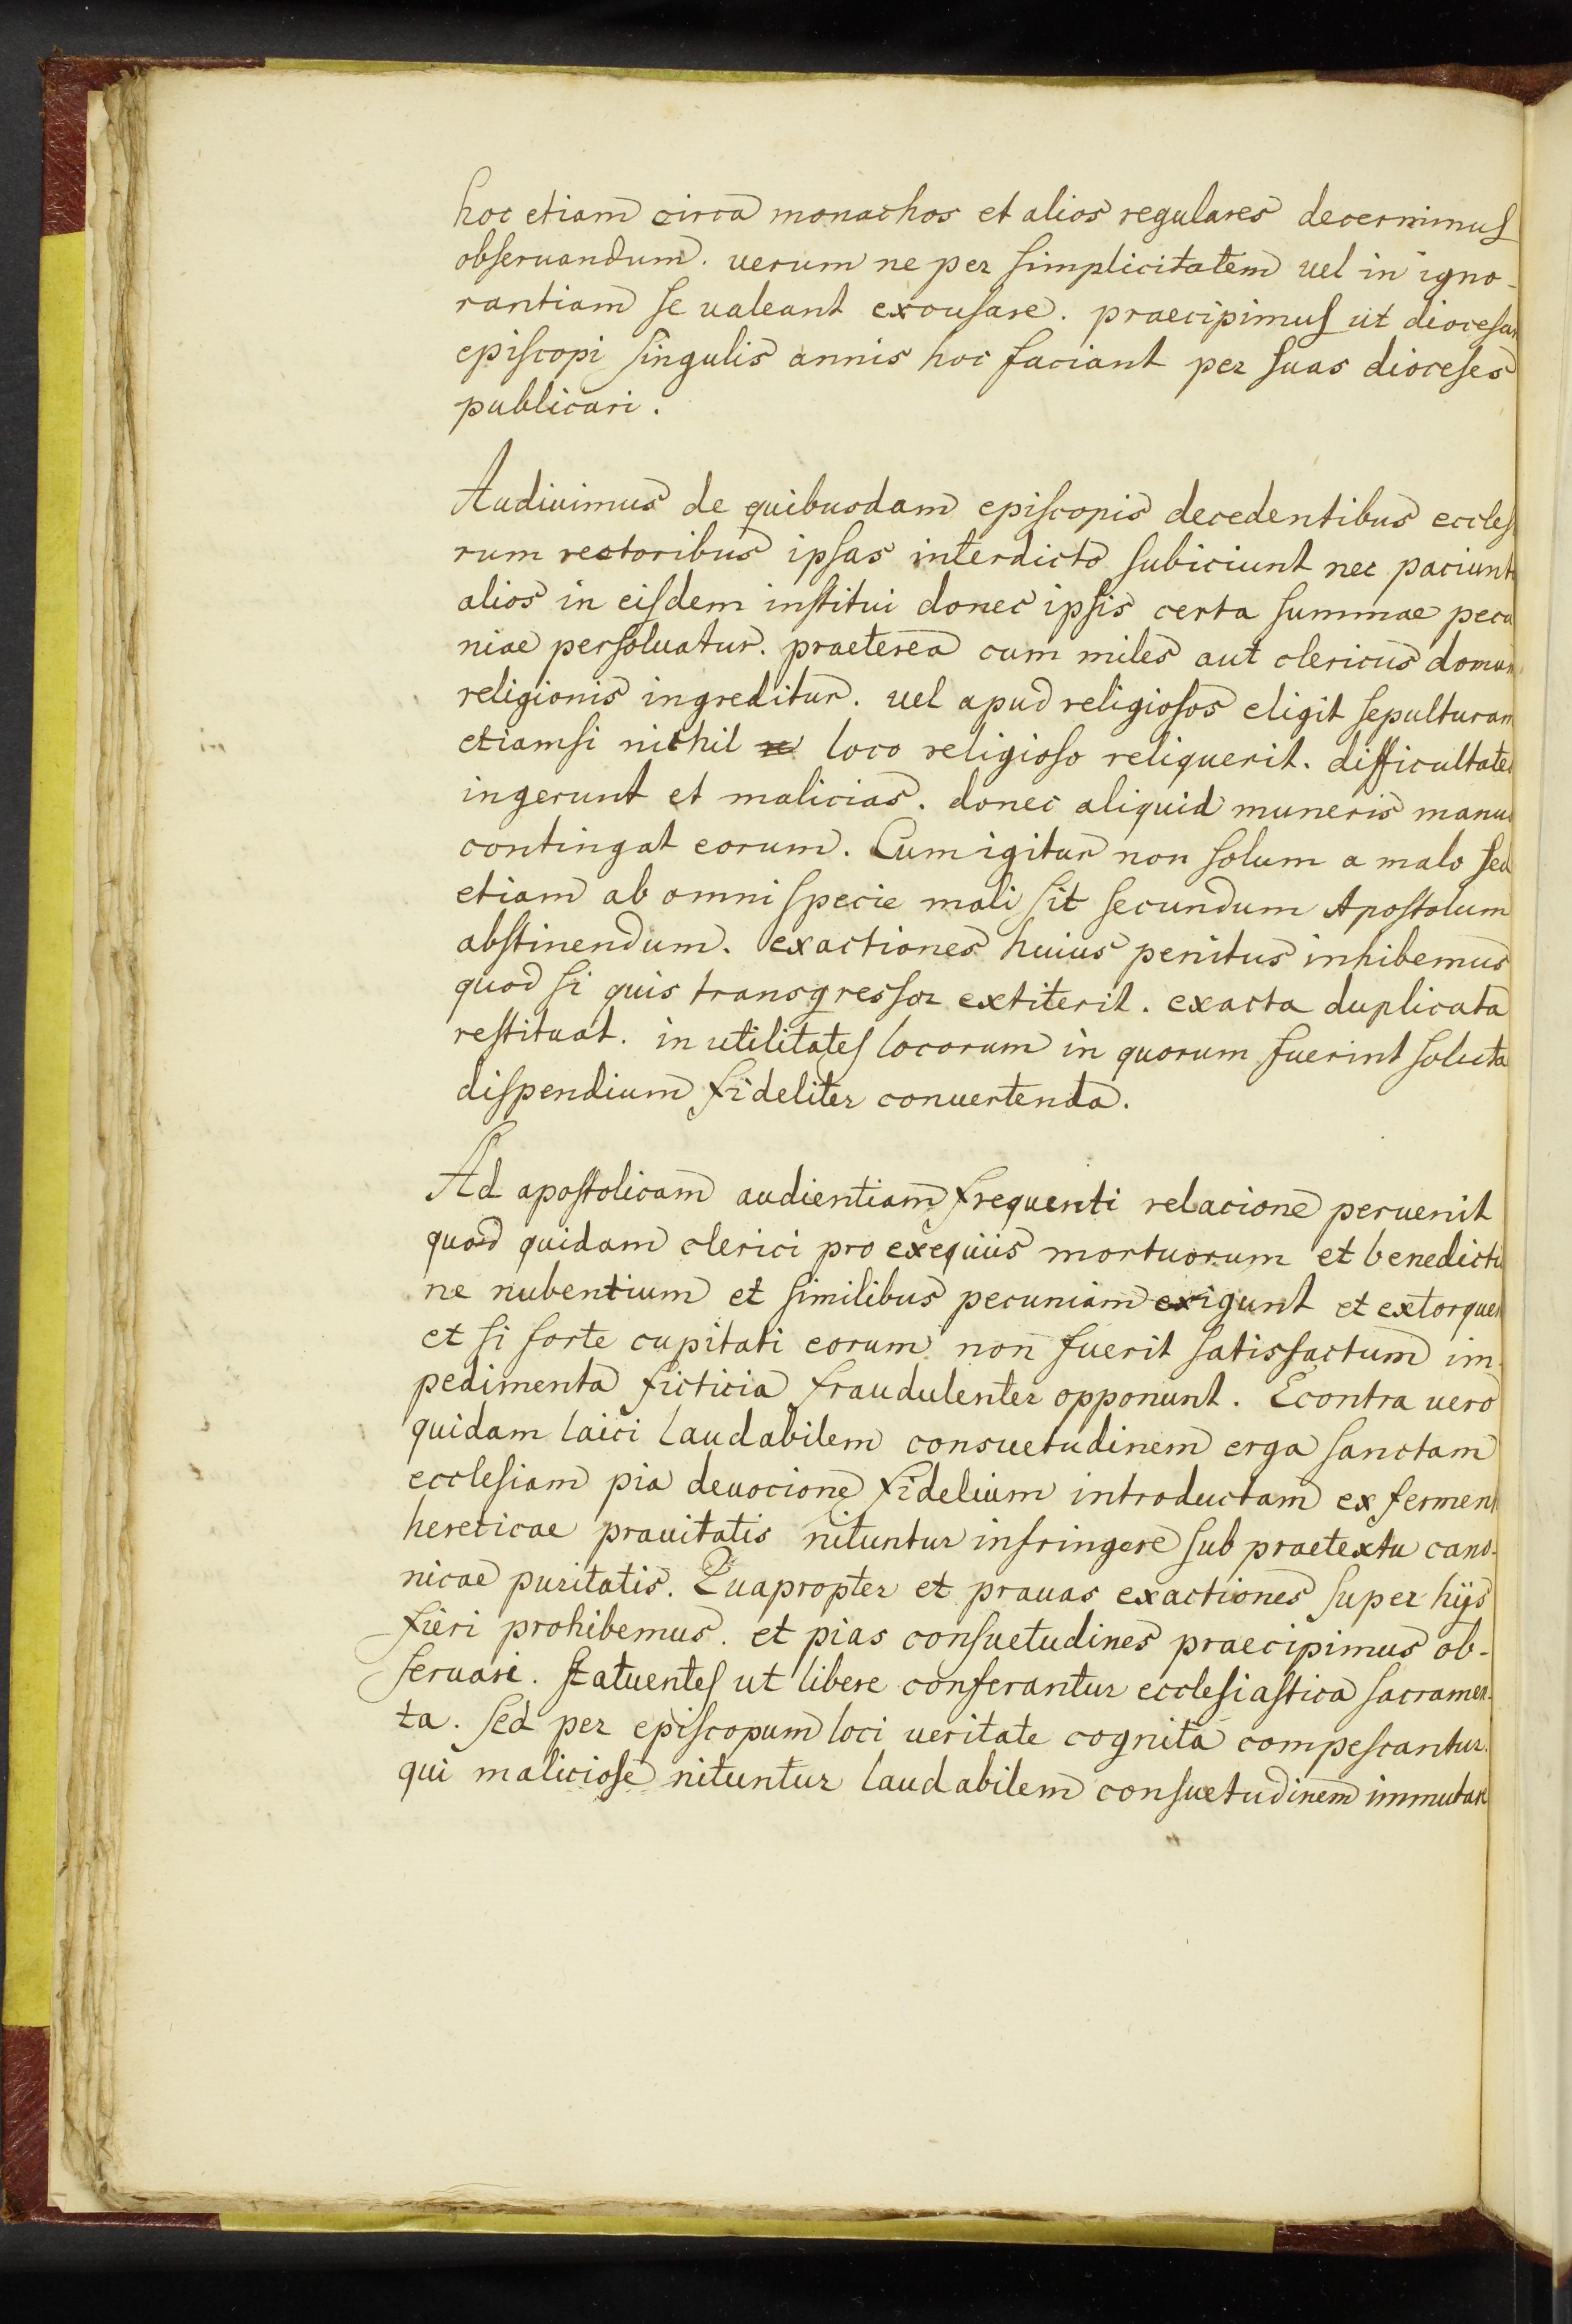 hoc etiam circa monachos et alios regulares decernimus
obseruandum. uerum ne per simplicitatem uel in igno-
rantiam se ualeant excusare. praecipimus ut diocesan
episcopi singulis annis hoc faciant per suas dioceses
publicari.
Audiuimus de quibusdam episcopis decedentibus eccles
rum rectoribus ipsas interdicto subiciunt nec paciunt
alios in eisdem institui donec ipsis certa summae pecu
niae persoluatur. praeterea cum miles aut clericus domum
religionis ingreditur. uel apud religiosos eligit sepulturam
etiamsi nichil re loco religioso reliquerit. difficultates
ingerunt et malicias. donec aliquid muneris manus
contingat eorum. Cum igitur non solum a malo sed
etiam ab omni specie mali sit secundum Apostolum
abstinendum. exactiones huius penitus inhibemus
quod si quis transgressor extiterit. exacta duplicata
restituat. in utilitates locorum in quorum fuerint soluta
dispendium fideliter conuertenda.
Ad apostolicam audientiam frequenti relacione peruenit
quod quidam clerici pro exequiis mortuorum et benedictio
ne nubentium et similibus pecuniam exigunt et extorquen
et si forte cupitati eorum non fuerit satisfactum im-
pedimenta ficticia fraudulenter opponunt. Econtra uero
quidam laici laudabilem consuetudinem erga sanctam
ecclesiam pia deuocione fidelium introductam ex ferment
hereticae prauitatis nituntur infringere sub praetextu cano-
nicae puritatis. Quapropter et prauas exactiones super hijs
fieri prohibemus. et pias consuetudines praecipimus ob-
seruari. statuentes ut libere conferantur ecclesiastica sacramen-
ta. sed per episcopum loci ueritate cognita compescantur.
qui maliciose nituntur laudabilem consuetudinem immutare